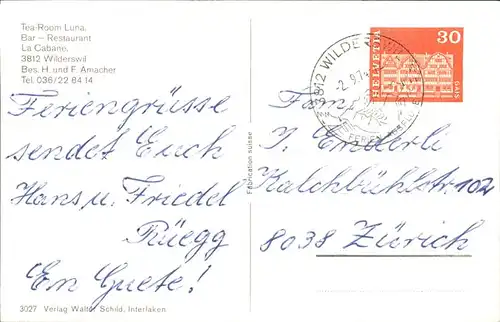 Tea-Room Luna,
Bar – Restaurant
La Cabane,
3812 Wilderswil
Bes. H. und F. Amacher
Tel. 036/22 84 14
Feriengrüsse
sendet Euch
Hans u. Friedel
Rüegg
En Guete!
3027 Verlag Walter Schild, Interlaken
Fabrication suisse
3812 WILDERSWIL
-2.9.7
FERIEN
HELVETIA
30
GAIS
Fam.
J. Enderli
Kalchbühlstr. 102
8038 Zürich